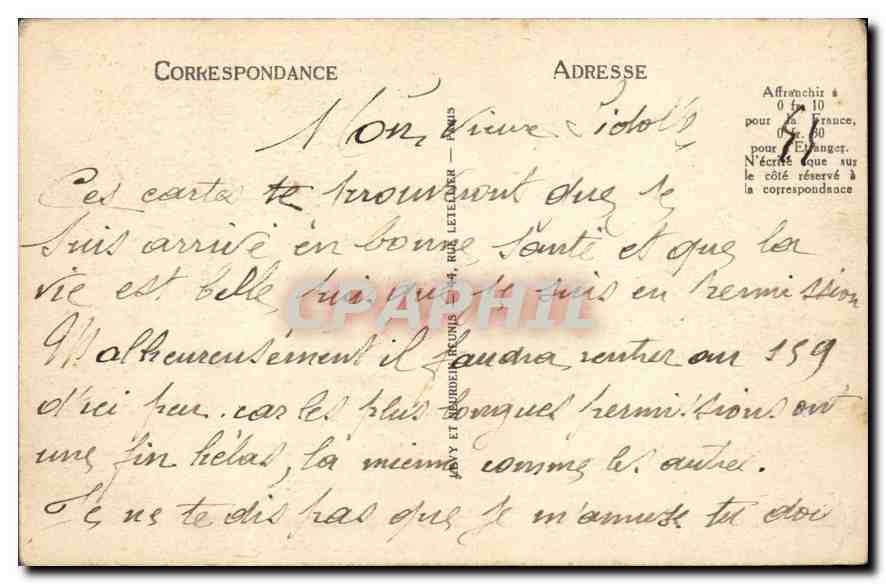 CORRESPONDANCE
ADRESSE
Affranchir à
0 fr. 10
pour la France,
0 fr. 30
pour l'Etranger.
N'écrire que sur
le côté réservé à
la correspondance
LEVY ET NEURDEIN REUNIS — 44, RUE LETELLIER — PARIS
Mon Vieux
Ces cartes te trouveront que je
suis arrivé én bonne santé et que la
vie est belle, puis que je suis en permission
Malheureusément il faudra rentrer au 159
d'ici peu. car les plus longues permissions ont
une fin hélas, la mienne comme les autres.
Je ne te dis pas que je m'amuse tu doi
CPAPHIL